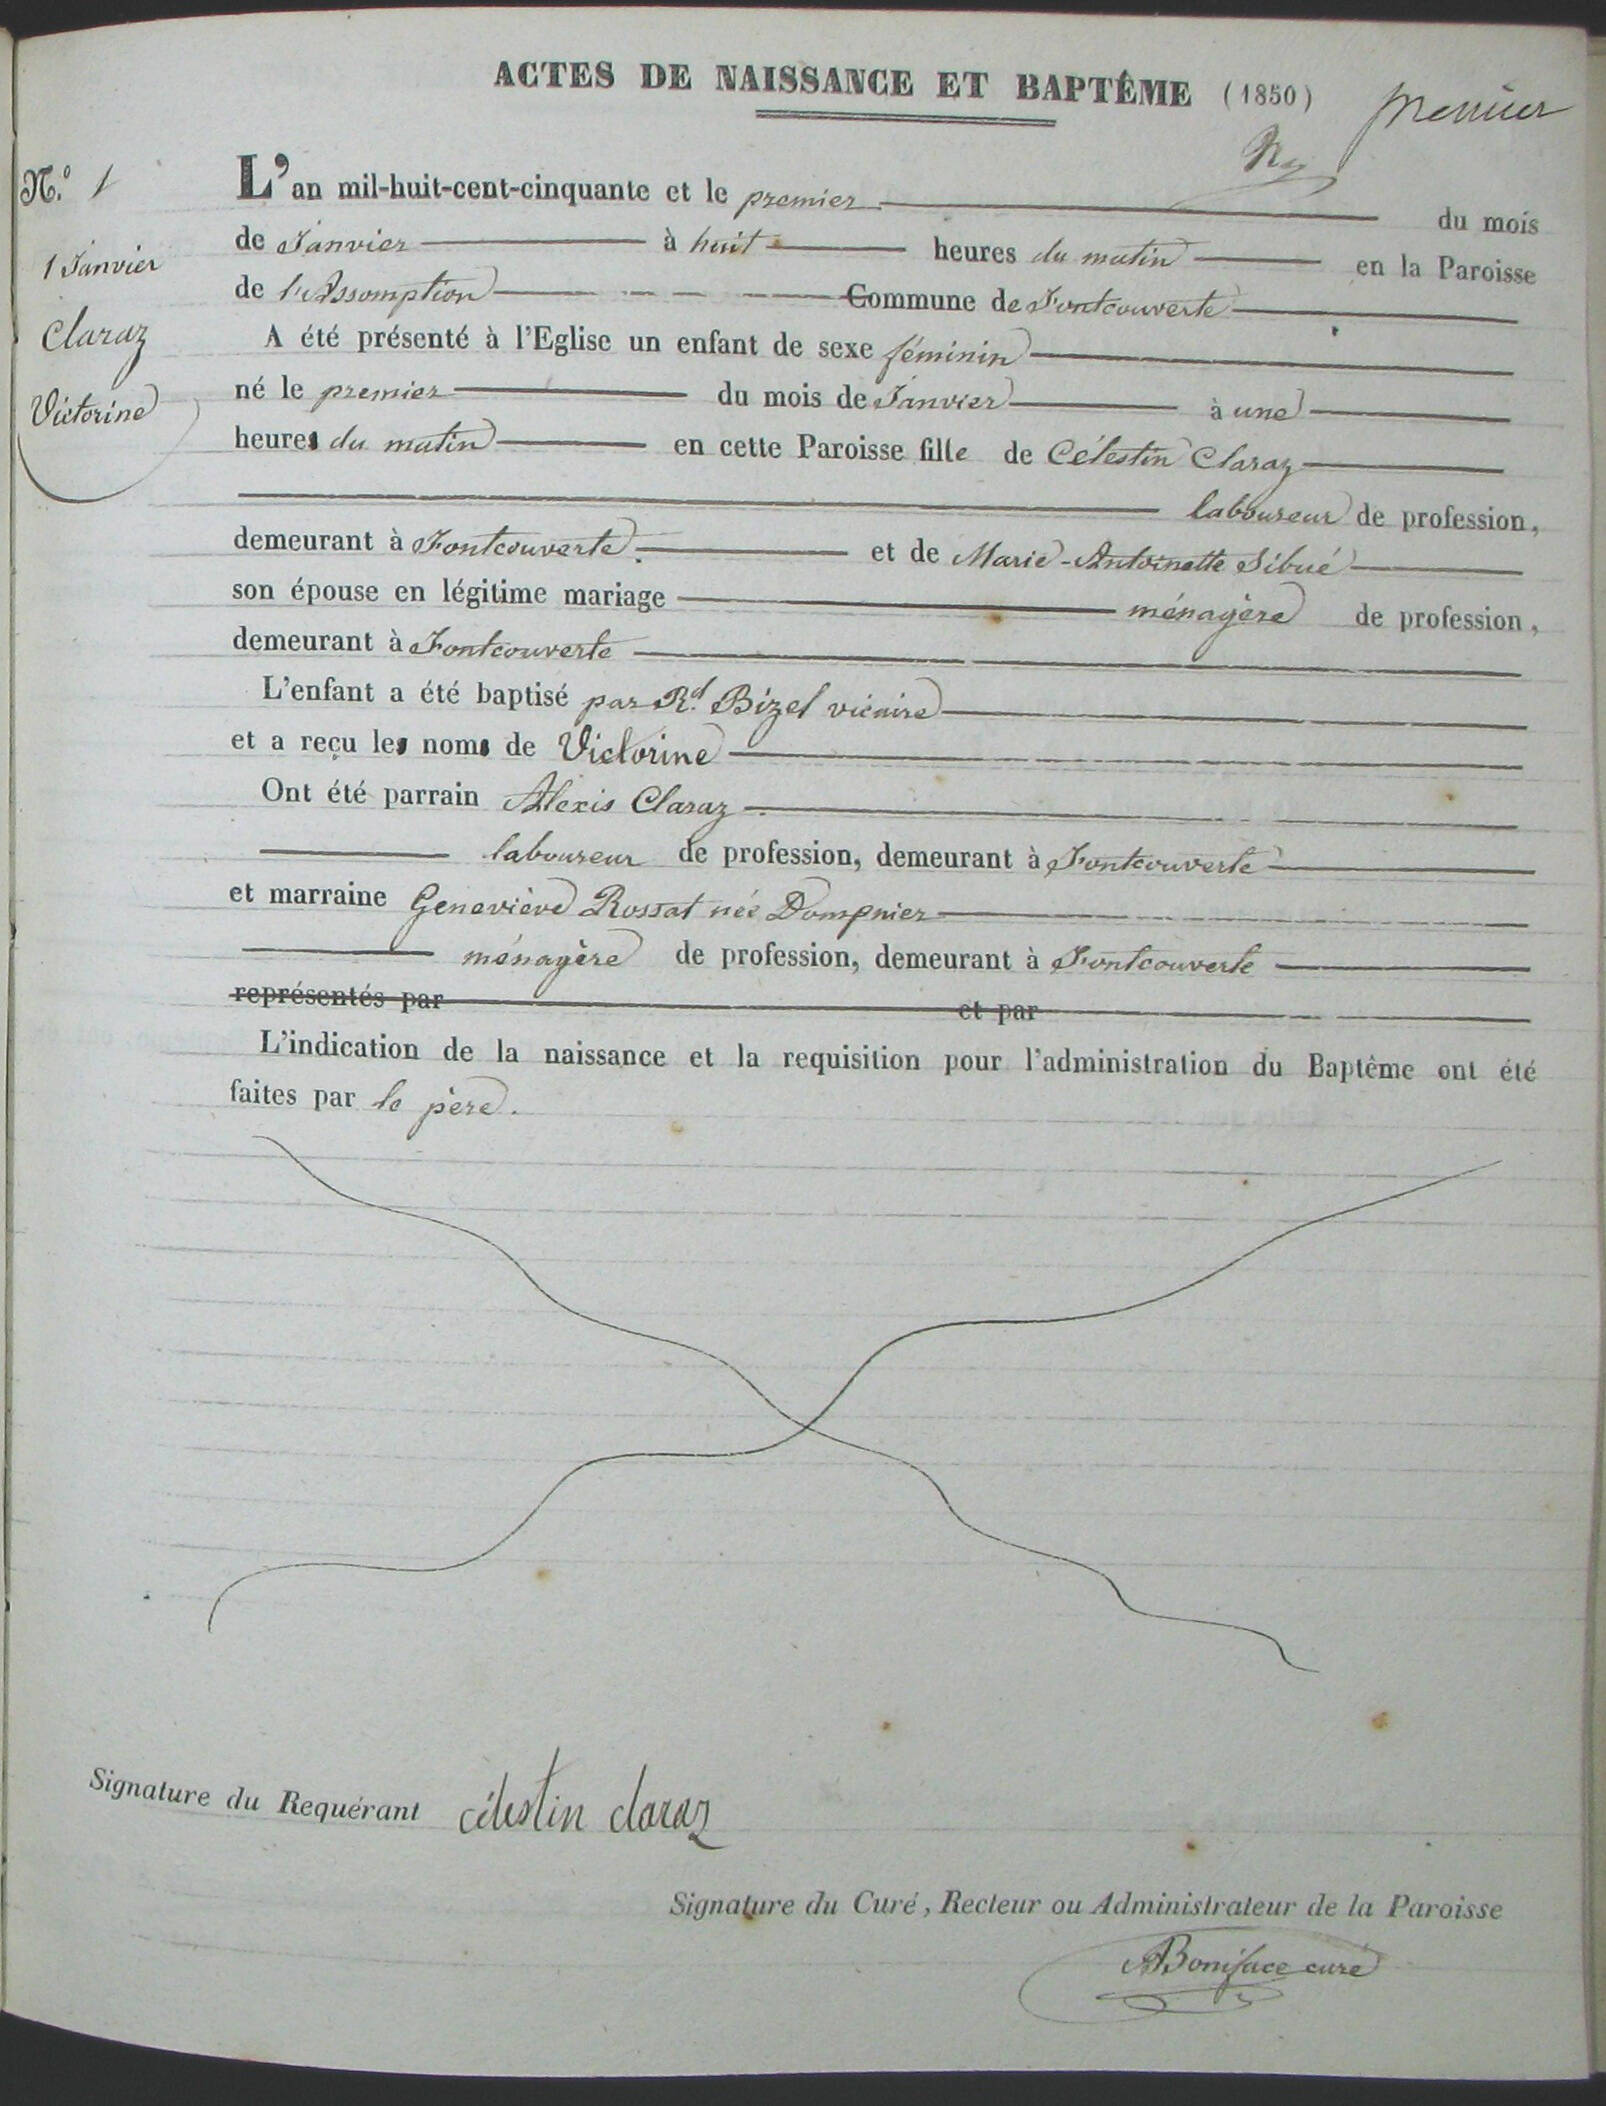 ACTES DE NAISSANCE ET BAPTÊME (1850) premier
N.º 1
1 Janvier
Claraz
Victorine
L'an mil-huit-cent-cinquante et le premier du mois
de Janvier à huit heures du matin en la Paroisse
de l'Assomption Commune de Fontcouverte
A été présenté à l'Eglise un enfant de sexe féminin
né le premier du mois de Janvier à une
heures du matin en cette Paroisse fille de Célestin Claraz
laboureur de profession,
demeurant à Fontcouverte. et de Marie-Antoinette Sibué
son épouse en légitime mariage ménagère de profession,
demeurant à Fontcouverte
L'enfant a été baptisé par Rd. Bizel vicaire
et a reçu les noms de Victorine
Ont été parrain Alexis Claraz
laboureur de profession, demeurant à Fontcouverte
et marraine Geneviève Rossat née Dompnier
ménagère de profession, demeurant à Fontcouverte
représentés par et par
L'indication de la naissance et la requisition pour l'administration du Baptême ont été
faites par le père.
Signature du Requérant célestin claraz
Signature du Curé, Recteur ou Administrateur de la Paroisse
ABoniface curé